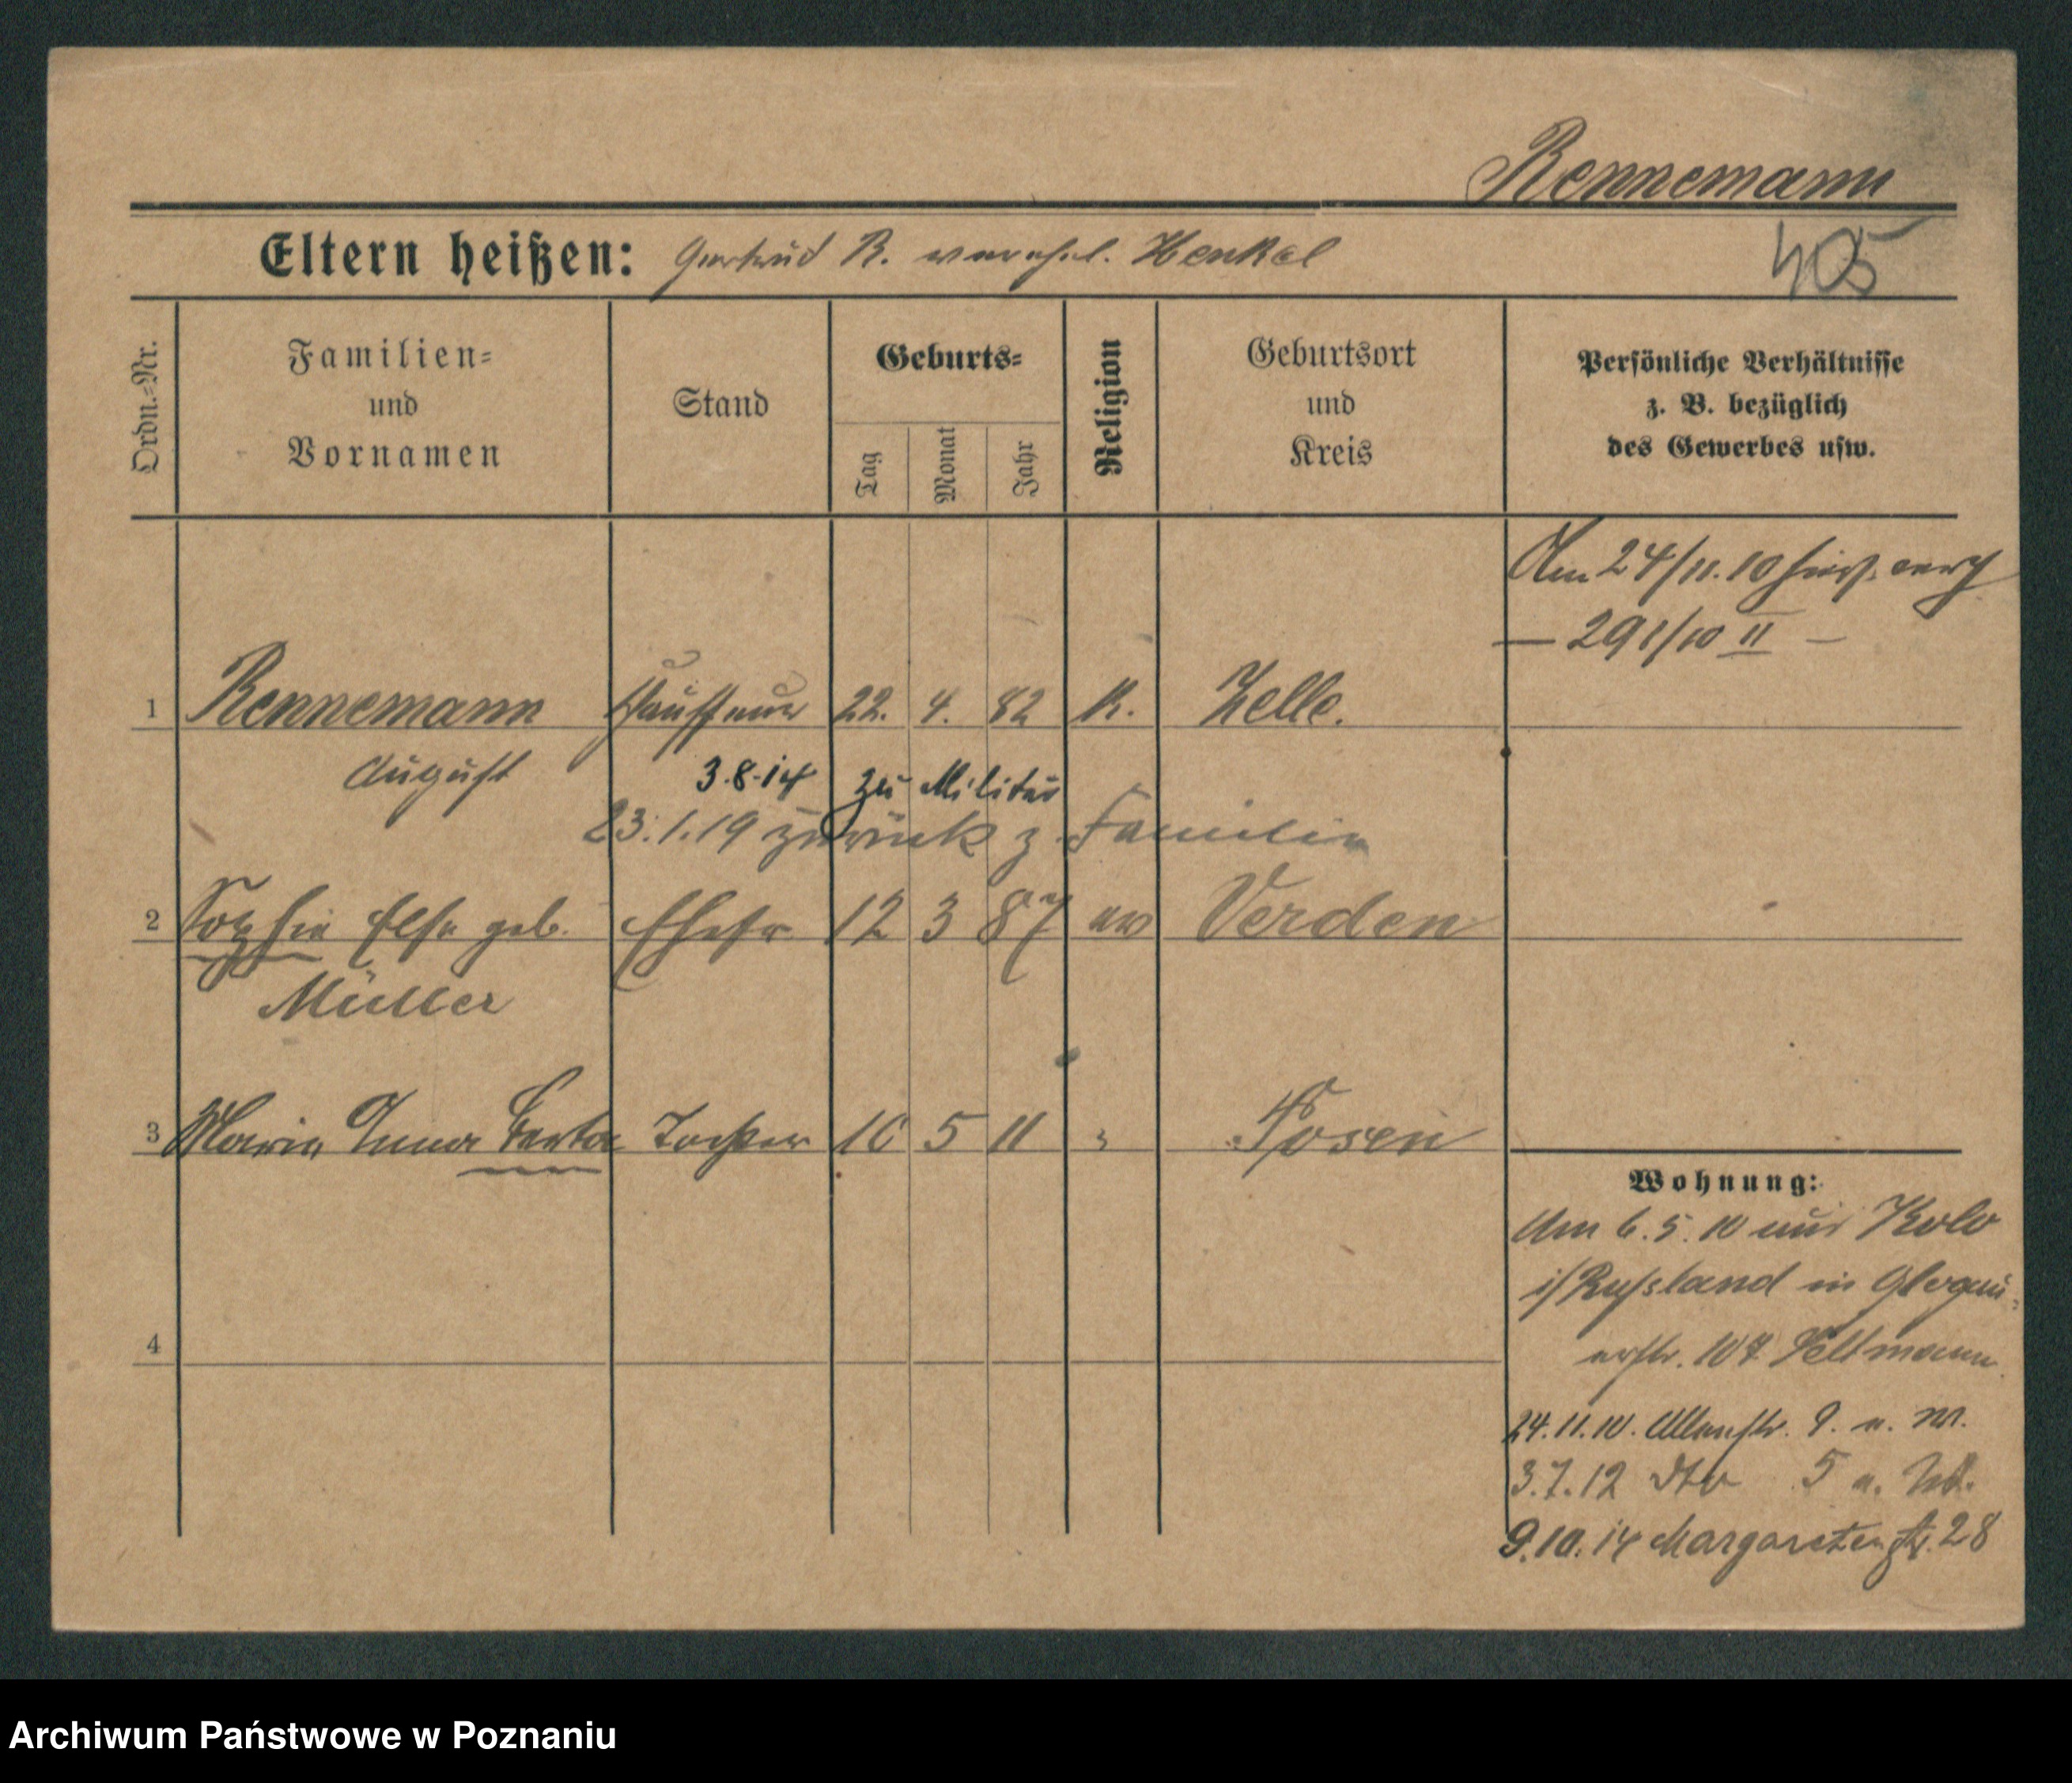 Rennemann
Eltern heißen: Gertrud R. verehel. Henkel
405
Ordn.=Nr.
Familien=
und
Vornamen
Stand
Geburts=
Tag
Monat
Jahr
Religion
Geburtsort
und
Kreis
Persönliche Verhältnisse
z. B. bezüglich
des Gewerbes usw.
Am 24/11.10
— 291/10 II —
1 Rennemann 22. 4. 82 K. Zelle.
August 3.8.14 zu Militär
23.1.19 zurück z. Familie
2 Sophie Else geb. Ehefr 12 3 87 ev Verden
Müller
3 Maria Anna Berta Tochter 10 5 11 " Posen
Wohnung:
Am 6.5.10 aus Kolo
i/Russland in Glogau-
erstr. 107
4
24.11.10. 9. a. M.
3.7.12 dto 5 a.
9.10.14 Margaretenstr. 28
Archiwum Państwowe w Poznaniu